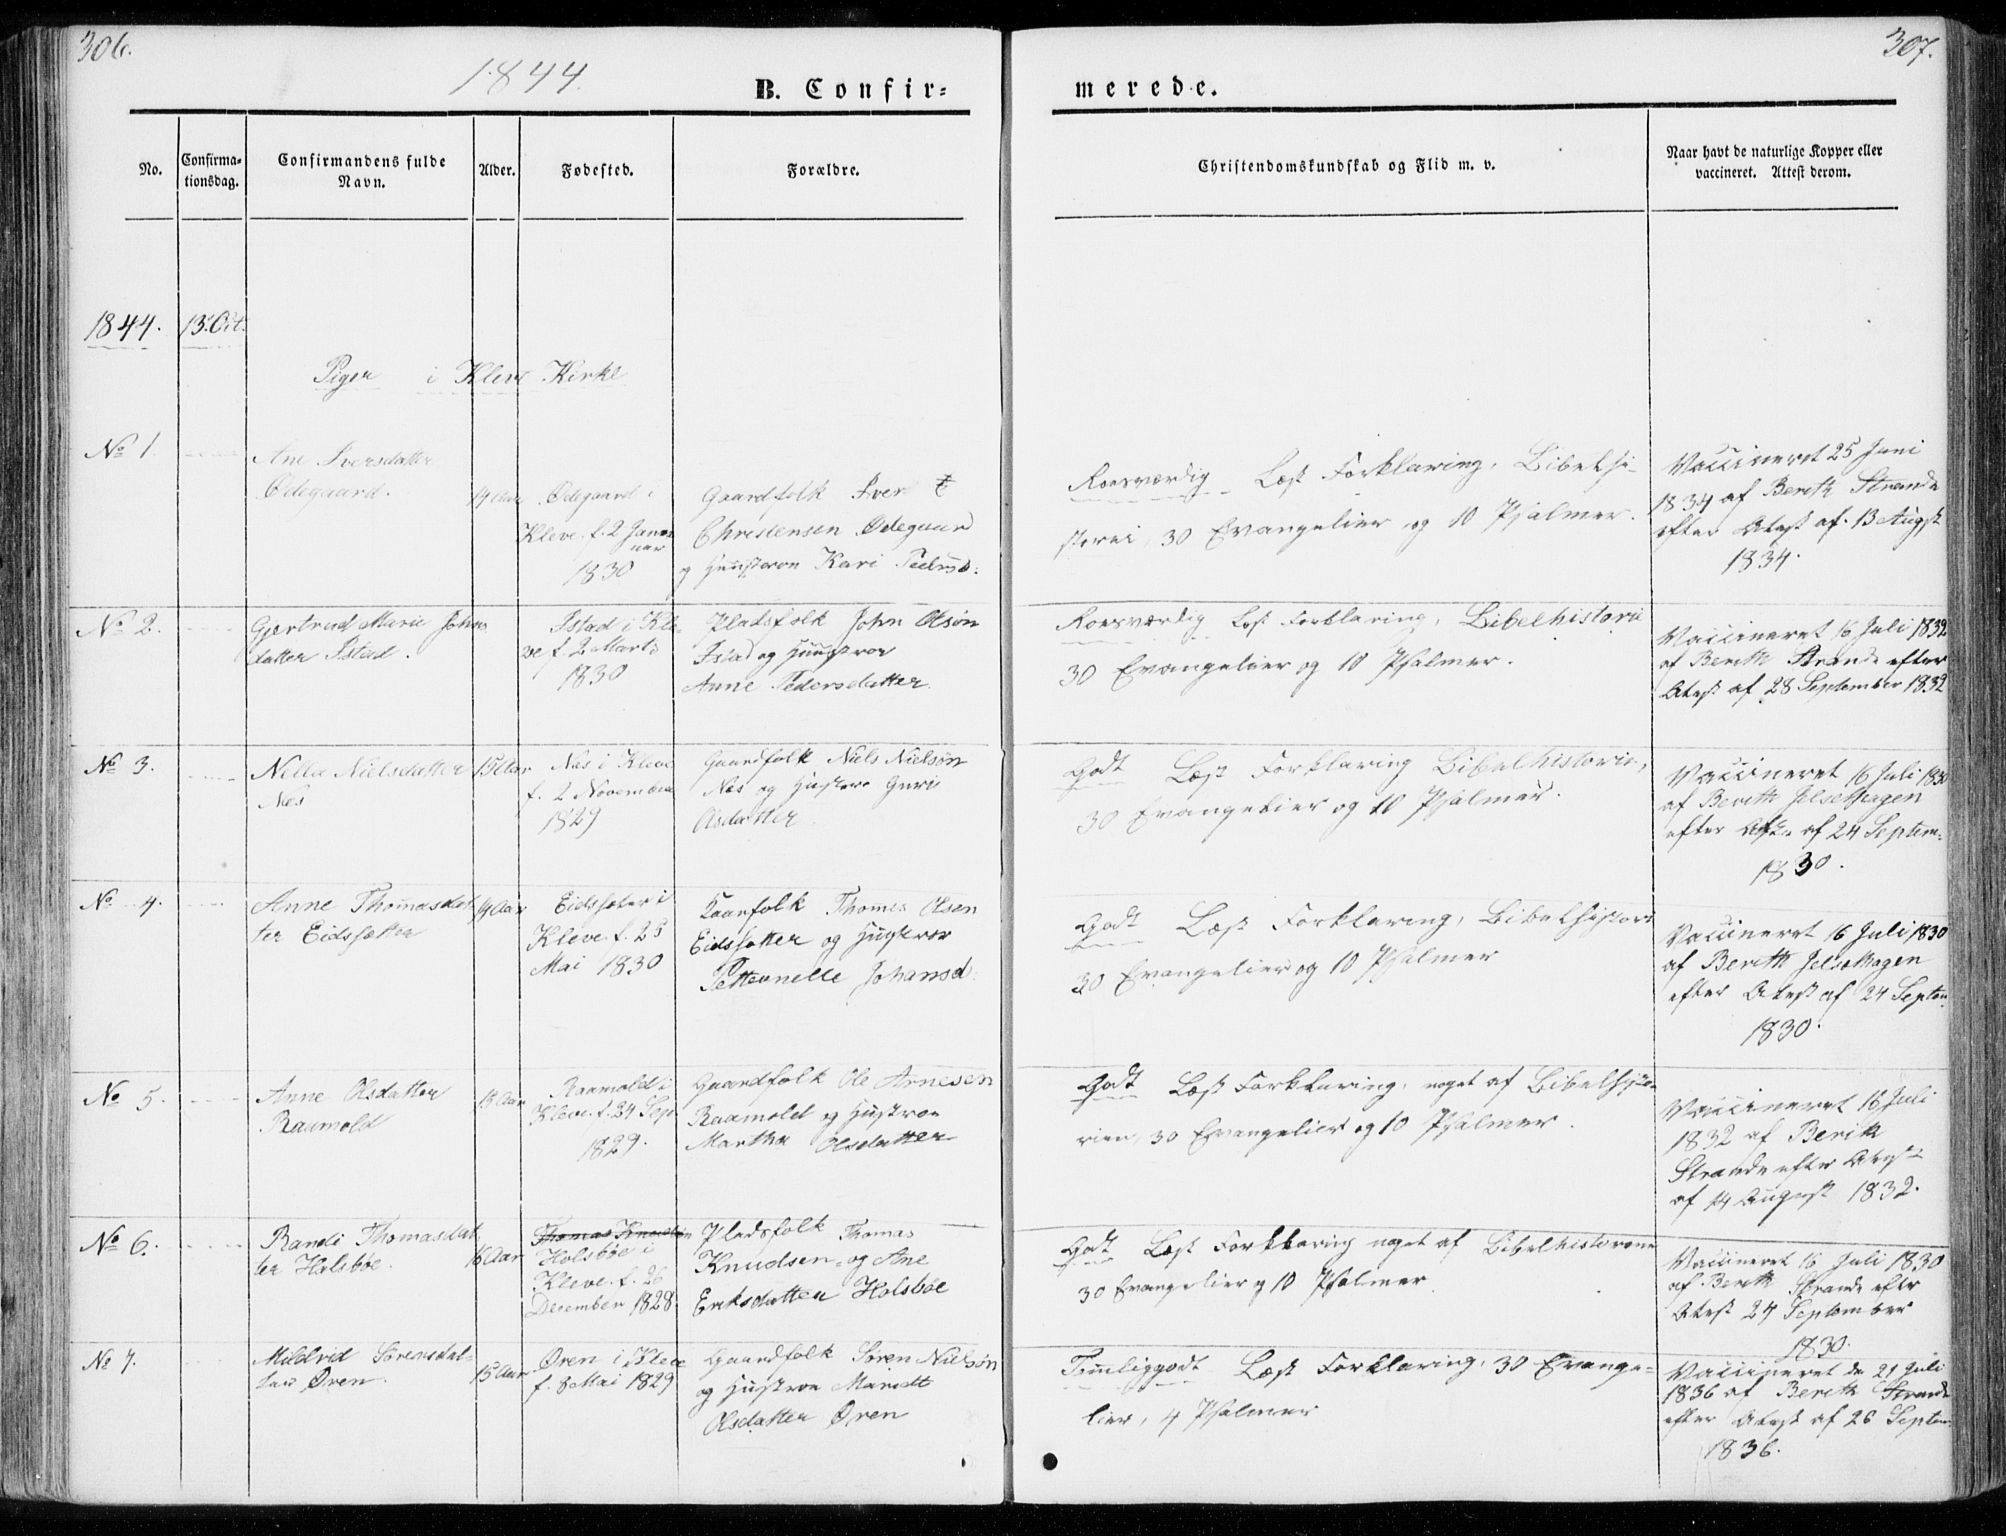 306.
307.
1844.
B. Confir-
merede.
No.
Confirma-
tionsdag.
Confirmandens fulde
Navn.
Alder.
Fødested.
Forældre.
Christendomskundskab og Flid m. v.
Naar havt de naturlige Kopper eller
vaccineret. Attest derom.
1844. 13. Oct.
Piger i Kleve Kirke
No 1.
Ane Iversdatter
Ødegaard.
14 Aar
Ødegaard i
Kleve. f. 2 Janu-
uar
1830
Gaardfolk Iver
Christensen Ødegaard
og Hustroe Kari
Roesværdig Læst Forklaring, Bibelhi-
storie, 30 Evangelier og 10 Psalmer.
Vaccineret 25 Juni
1834 af Berith Strande
efter Atest af 13 Augst
1834.
No 2.
Gjertrud Marie Johns
datter Istad.
Istad i Kle-
ve f. 2 Marts
1830
Pladsfolk John Olsøn
Istad og Hustroe
Anne Pedersdatter
Roesværdig Læst Forklaring, Bibelhistorie
30 Evangelier og 10 Psalmer.
Vaccineret 16 Juli 1832
af Berith Strande efter
Atest af 28 September 1832
No 3.
Nella Nielsdatter
Næs
15 Aar
Næs i Kleve
f. 2 November
1829
Gaardfolk Niels Nielsøn
Næs og Hustroe Guri
Olsdatter
Godt Læst Forklaring Bibelhistorie,
30 Evangelier og 10 Psalmer.
Vaccineret 16 Juli 1830
af Berith Jelsethagen
efter Atest af 24 Septem-
1830.
No 4.
Anne Thomasdat-
ter Eidssætter
14 Aar
Eidssæter i
Kleve. f. 25
Mai 1830
Gaardfolk Thomes Olsen
Eidssætter og Hustroe
Petternelle Johansd:
Godt Læst Forklaring, Bibelhistorie
30 Evangelier og 10 Psalmer
Vaccineret 16 Juli 1830
af Berith Jelsethagen
efter Atest af 24 Septem
1830.
No 5.
Anne Olsdatter
Raamold
15 Aar
Raamold i
Kleve. f. 24 Sep.
1829.
Gaardfolk Ole Arnesen
Raamold og Hustroe
Martha Olsdatter
Godt Læst Forklaring, noget af Bibelhisto-
rien, 30 Evangelier og 10 Psalmer.
Vaccineret 16 Juli
1832 af Berith
Strande efter Atest
af 14 August 1832.
No 6.
Randi Thomasdat
ter Holsbøe.
16 Aar
Thomas Knudsen
Holsbøe i
Kleve. f. 26
December 1828.
Pladsfolk Thomas
Knudsen og Ane
Eriksdatter Holsbøe
Godt Læst Forklaring noget af Bibelhistorien
30 Evangelier og 10 Psalmer
Vaccineret 16 Juli 1830
af Berith Strande efter
Atest 24 September
1830.
No 7.
Mildrid Sørensdat-
ter Øren.
15 Aar
Øren i Kleve
f. 8 Mai 1829
Gaardfolk Søren Nielsøn
og Hustroe Marodt
Olsdatter Øren
Temmeliggodt Læst Forklaring, 30 Evange-
lier, 4 Psalmer
Vaccineret de 21 Juli
1836 af Berith Strande
efter Atest af 26 Septem
1836.